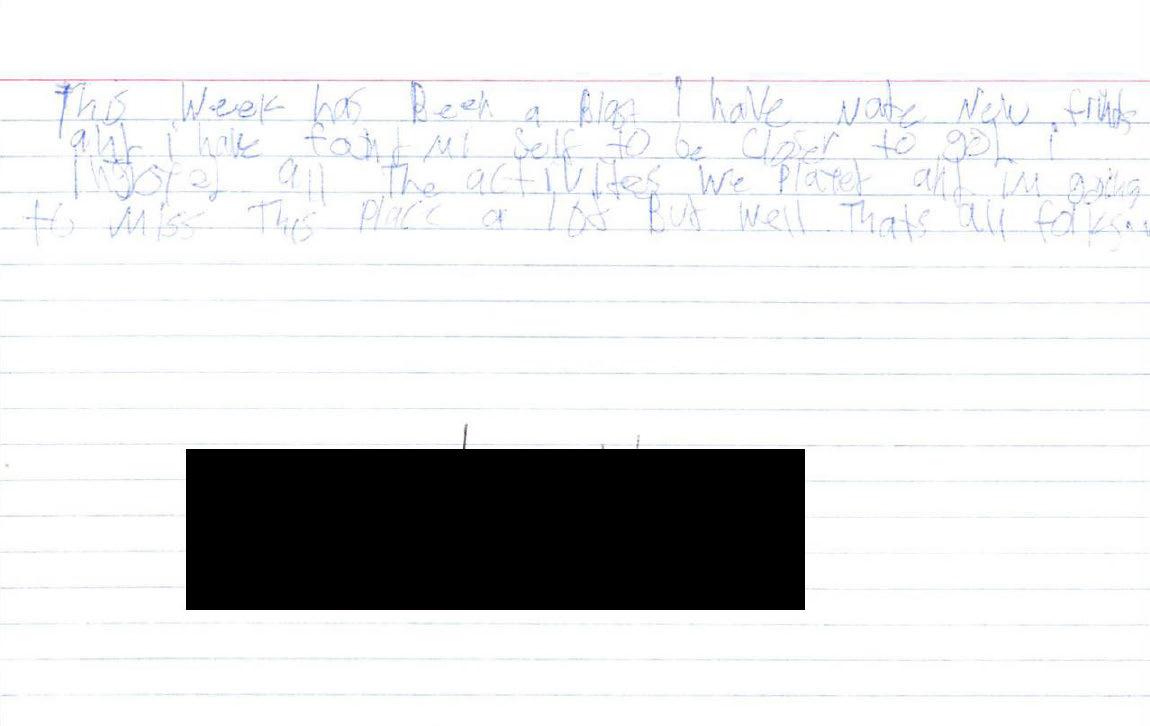 This Week has Been a Blast I have Made New frinds
and i have found mi self to be Closer to god i
Injoyed all The activities We Played and im going
to Miss This Place a lot But Well Thats all folks...